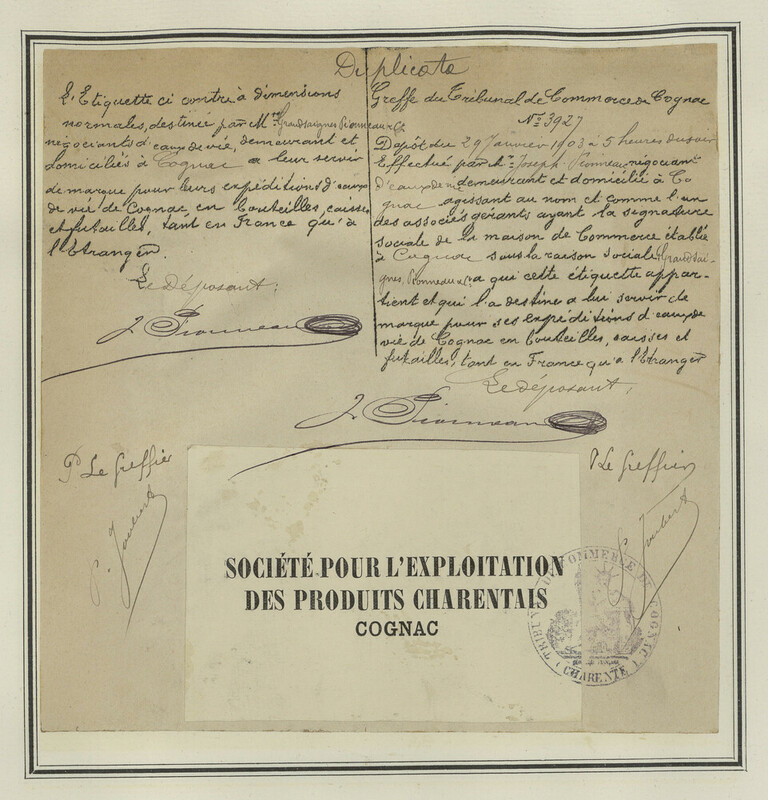 Duplicata
L'Etiquette ci contre à dimensions
normales, destinée par Mrs Grandsaignes Pionneau & Co
négociants d'eaux de vie, demeurant et
domiciliés à Cognac a leur servir
de marque pour leurs expéditions d'eaux
de vie de Cognac en bouteilles, caisses
et futailles, tant en France qu'à
l'Etranger.
Le déposant:
J. Pionneau
Greffe du Tribunal de Commerce de Cognac
No 3927
Dépôt du 29 Janvier 1903 à 5 heures du soir
Effectué par Mr Joseph Pionneau, négociant
d'eaux de vie demeurant et domicilié à Co
gnac agissant au nom et comme l'un
des associés gérants ayant la signature
sociale de la maison de Commerce établie
à Cognac sous la raison sociale Grandsai-
gnes, Pionneau & Co a qui cette étiquette appar-
tient et qui l'a destine a lui servir de
marque pour ses expéditions d'eaux de
vie de Cognac en bouteilles, caisses et
futailles, tant en France qu'a l'Etranger
Le déposant,
J. Pionneau
P Le Greffier
Joubert
P Le Greffier
Joubert
SOCIÉTÉ POUR L'EXPLOITATION
DES PRODUITS CHARENTAIS
COGNAC
TRIBUNAL DE COMMERCE DE COGNAC
(CHARENTE)